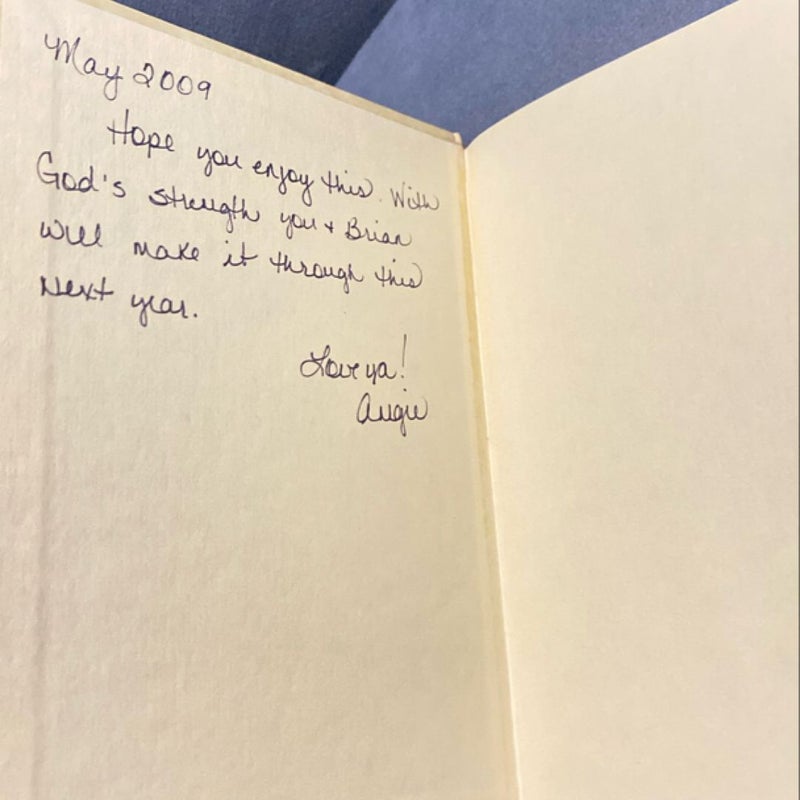 May 2009
Hope you enjoy this. With
God's strength you + Brian
will make it through this
Next year.
Love ya!
Angie